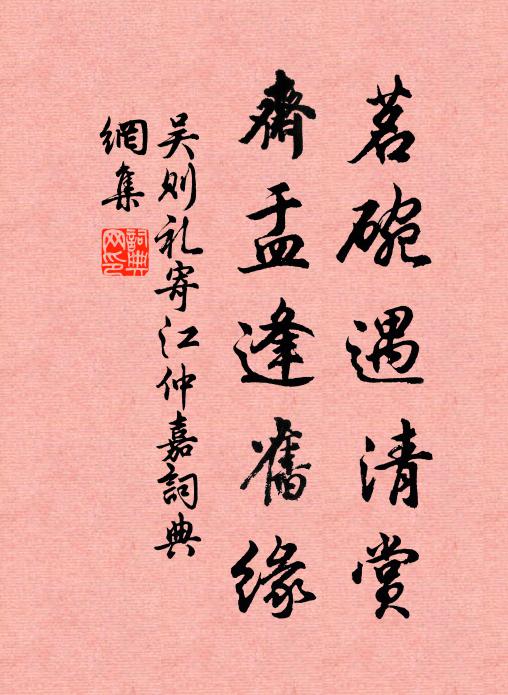 茗碗遇清赏
齋盂逢舊緣
吴则礼寄江仲嘉詞典
網集
詞典
网印